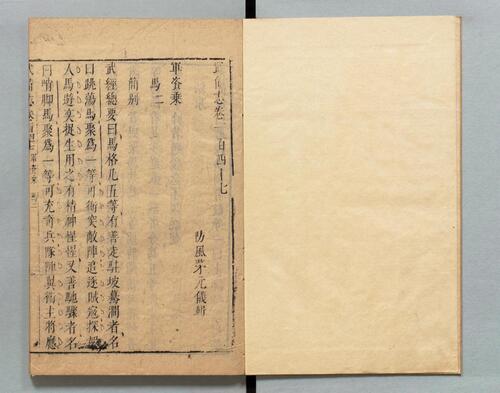 武備志卷一百四十七
防風茅元儀輯
軍資乗
馬二
簡别
武經總要曰馬格凡五等有善走駐坡驀澗者名
曰跳蕩馬聚爲一等可衝突敵陣追逐賊寇探報
人馬遊奕捉生用之有精神惺惺又善馳驟者名
曰 脚馬聚爲一等可充 兵隊 與 主將應
武備志 卷一百四十七 軍資乗 馬二